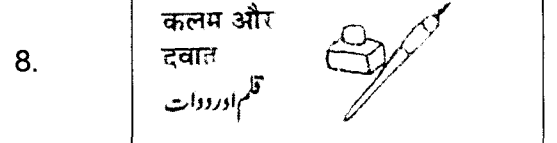 8.
कलम और
दवात
قلم اور دوات